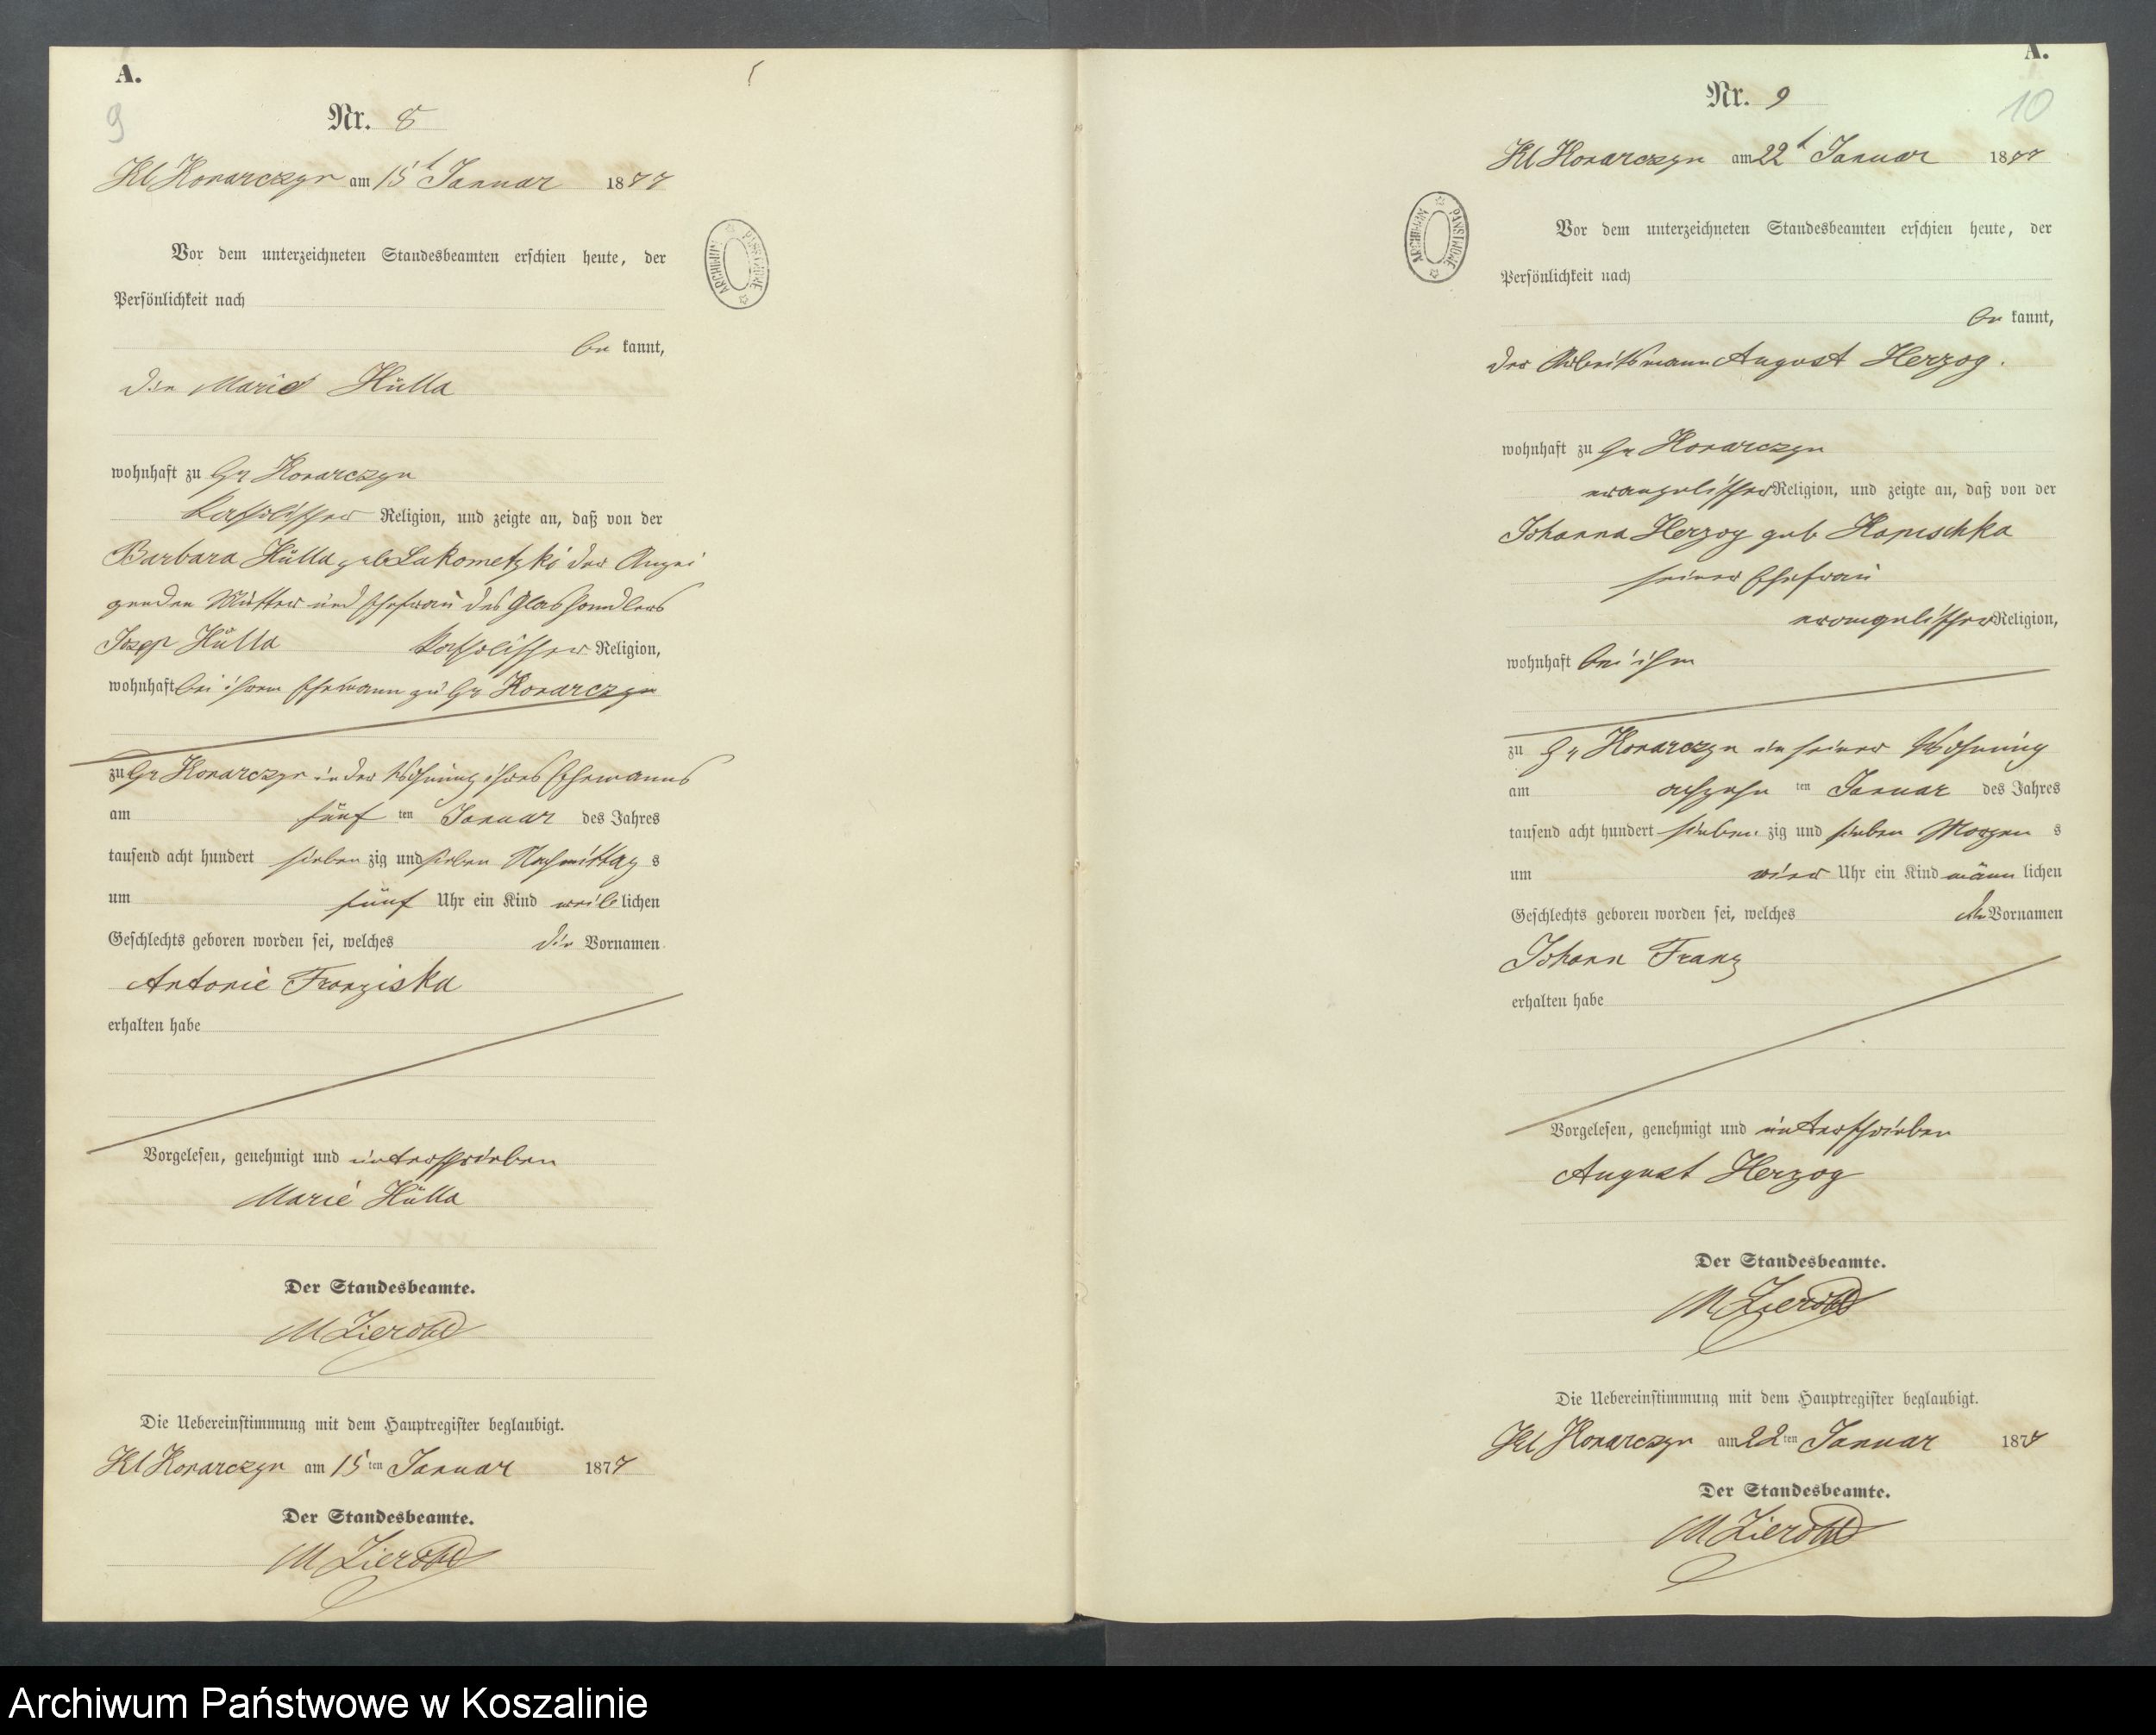 A.
9
Nr. 8
Kl Konarczyn am 15t Januar 1877
ARCHIWUM PAŃSTWOWE
Vor dem unterzeichneten Standesbeamten erschien heute, der
Persönlichkeit nach
be kannt,
die Marie Hulla
wohnhaft zu Gr Konarczyn
katholischer Religion, und zeigte an, daß von der
Barbara Hulla geb Lukometzki der Anzei
genden Mutter und Ehefrau des Glashandlers
Josep Hulla katholischer Religion,
wohnhaft bei ihrem Ehemann zu Gr Konarczyn
zu Gr Konarczyn in der Wohnung ihres Ehemanns
am fünf ten Januar des Jahres
tausend acht hundert sieben zig und sieben Nachmittag s
um fünf Uhr ein Kind weib lichen
Geschlechts geboren worden sei, welches die Vornamen
Antonie Franziska
erhalten habe
Vorgelesen, genehmigt und unterschrieben
Marie Hulla
Der Standesbeamte.
Die Uebereinstimmung mit dem Hauptregister beglaubigt.
Kl Konarczyn am 15 ten Januar 1877
Der Standesbeamte.
A.
10
Nr. 9
Kl Konarczyn am 22t Januar 1877
ARCHIWUM PAŃSTWOWE
Vor dem unterzeichneten Standesbeamten erschien heute, der
Persönlichkeit nach
be kannt,
der Arbeitsmann August Herzog.
wohnhaft zu Gr Konarczyn
evangelischer Religion, und zeigte an, daß von der
Johanna Herzog geb Kapischka
seiner Ehefrau
evangelischer Religion,
wohnhaft bei ihm
zu Gr Konarczyn in seiner Wohnung
am achzehn ten Januar des Jahres
tausend acht hundert sieben zig und sieben Morgen s
um vier Uhr ein Kind männ lichen
Geschlechts geboren worden sei, welches die Vornamen
Johann Franz
erhalten habe
Vorgelesen, genehmigt und unterschrieben
August Herzog
Der Standesbeamte.
Die Uebereinstimmung mit dem Hauptregister beglaubigt.
Kl Konarczyn am 22 ten Januar 1877
Der Standesbeamte.
Archiwum Państwowe w Koszalinie